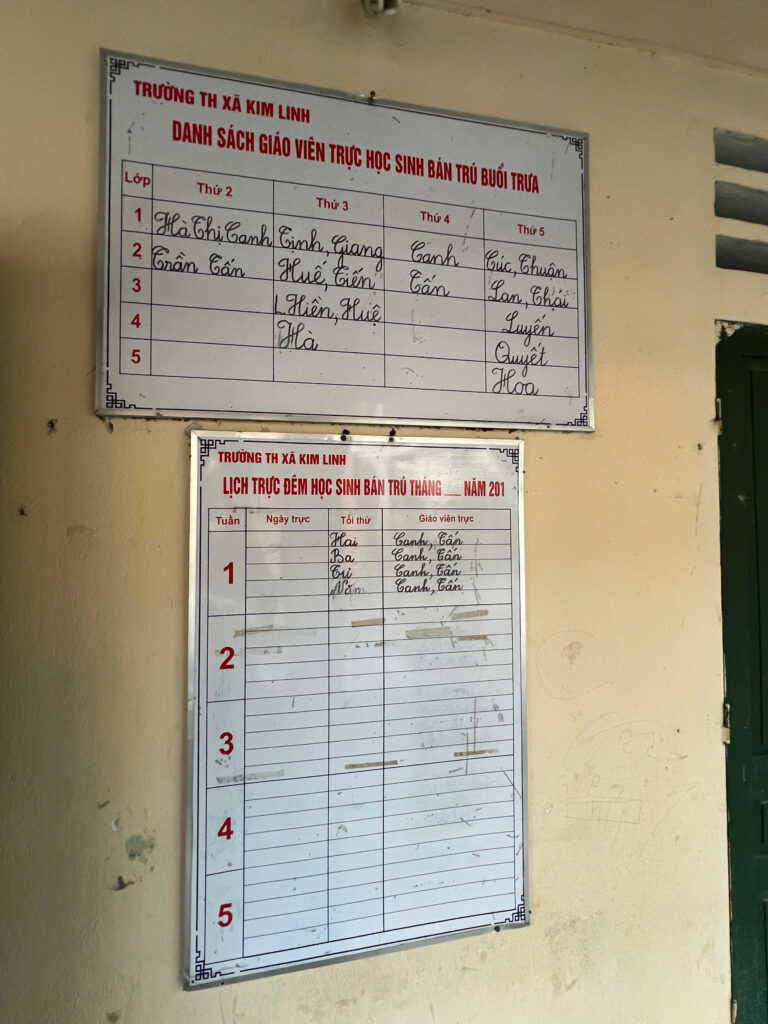 TRƯỜNG TH XÃ KIM LINH
DANH SÁCH GIÁO VIÊN TRỰC HỌC SINH BÁN TRÚ BUỔI TRƯA
Lớp Thứ 2 Thứ 3 Thứ 4 Thứ 5
1 Hà Thị Canh Tinh, Giang Canh Cúc, Thuận
2 Trần Tấn Huế, Tiến Tấn Lan, Thái
3 L.Hiền, Huệ Luyến
4 Hà Quyết
5 Hoa
TRƯỜNG TH XÃ KIM LINH
LỊCH TRỰC ĐÊM HỌC SINH BÁN TRÚ THÁNG __ NĂM 201
Tuần Ngày trực Tối thứ Giáo viên trực
Hai Canh, Tấn
Ba Canh, Tấn
1 Tư Canh, Tấn
Năm Canh, Tấn
2
3
4
5